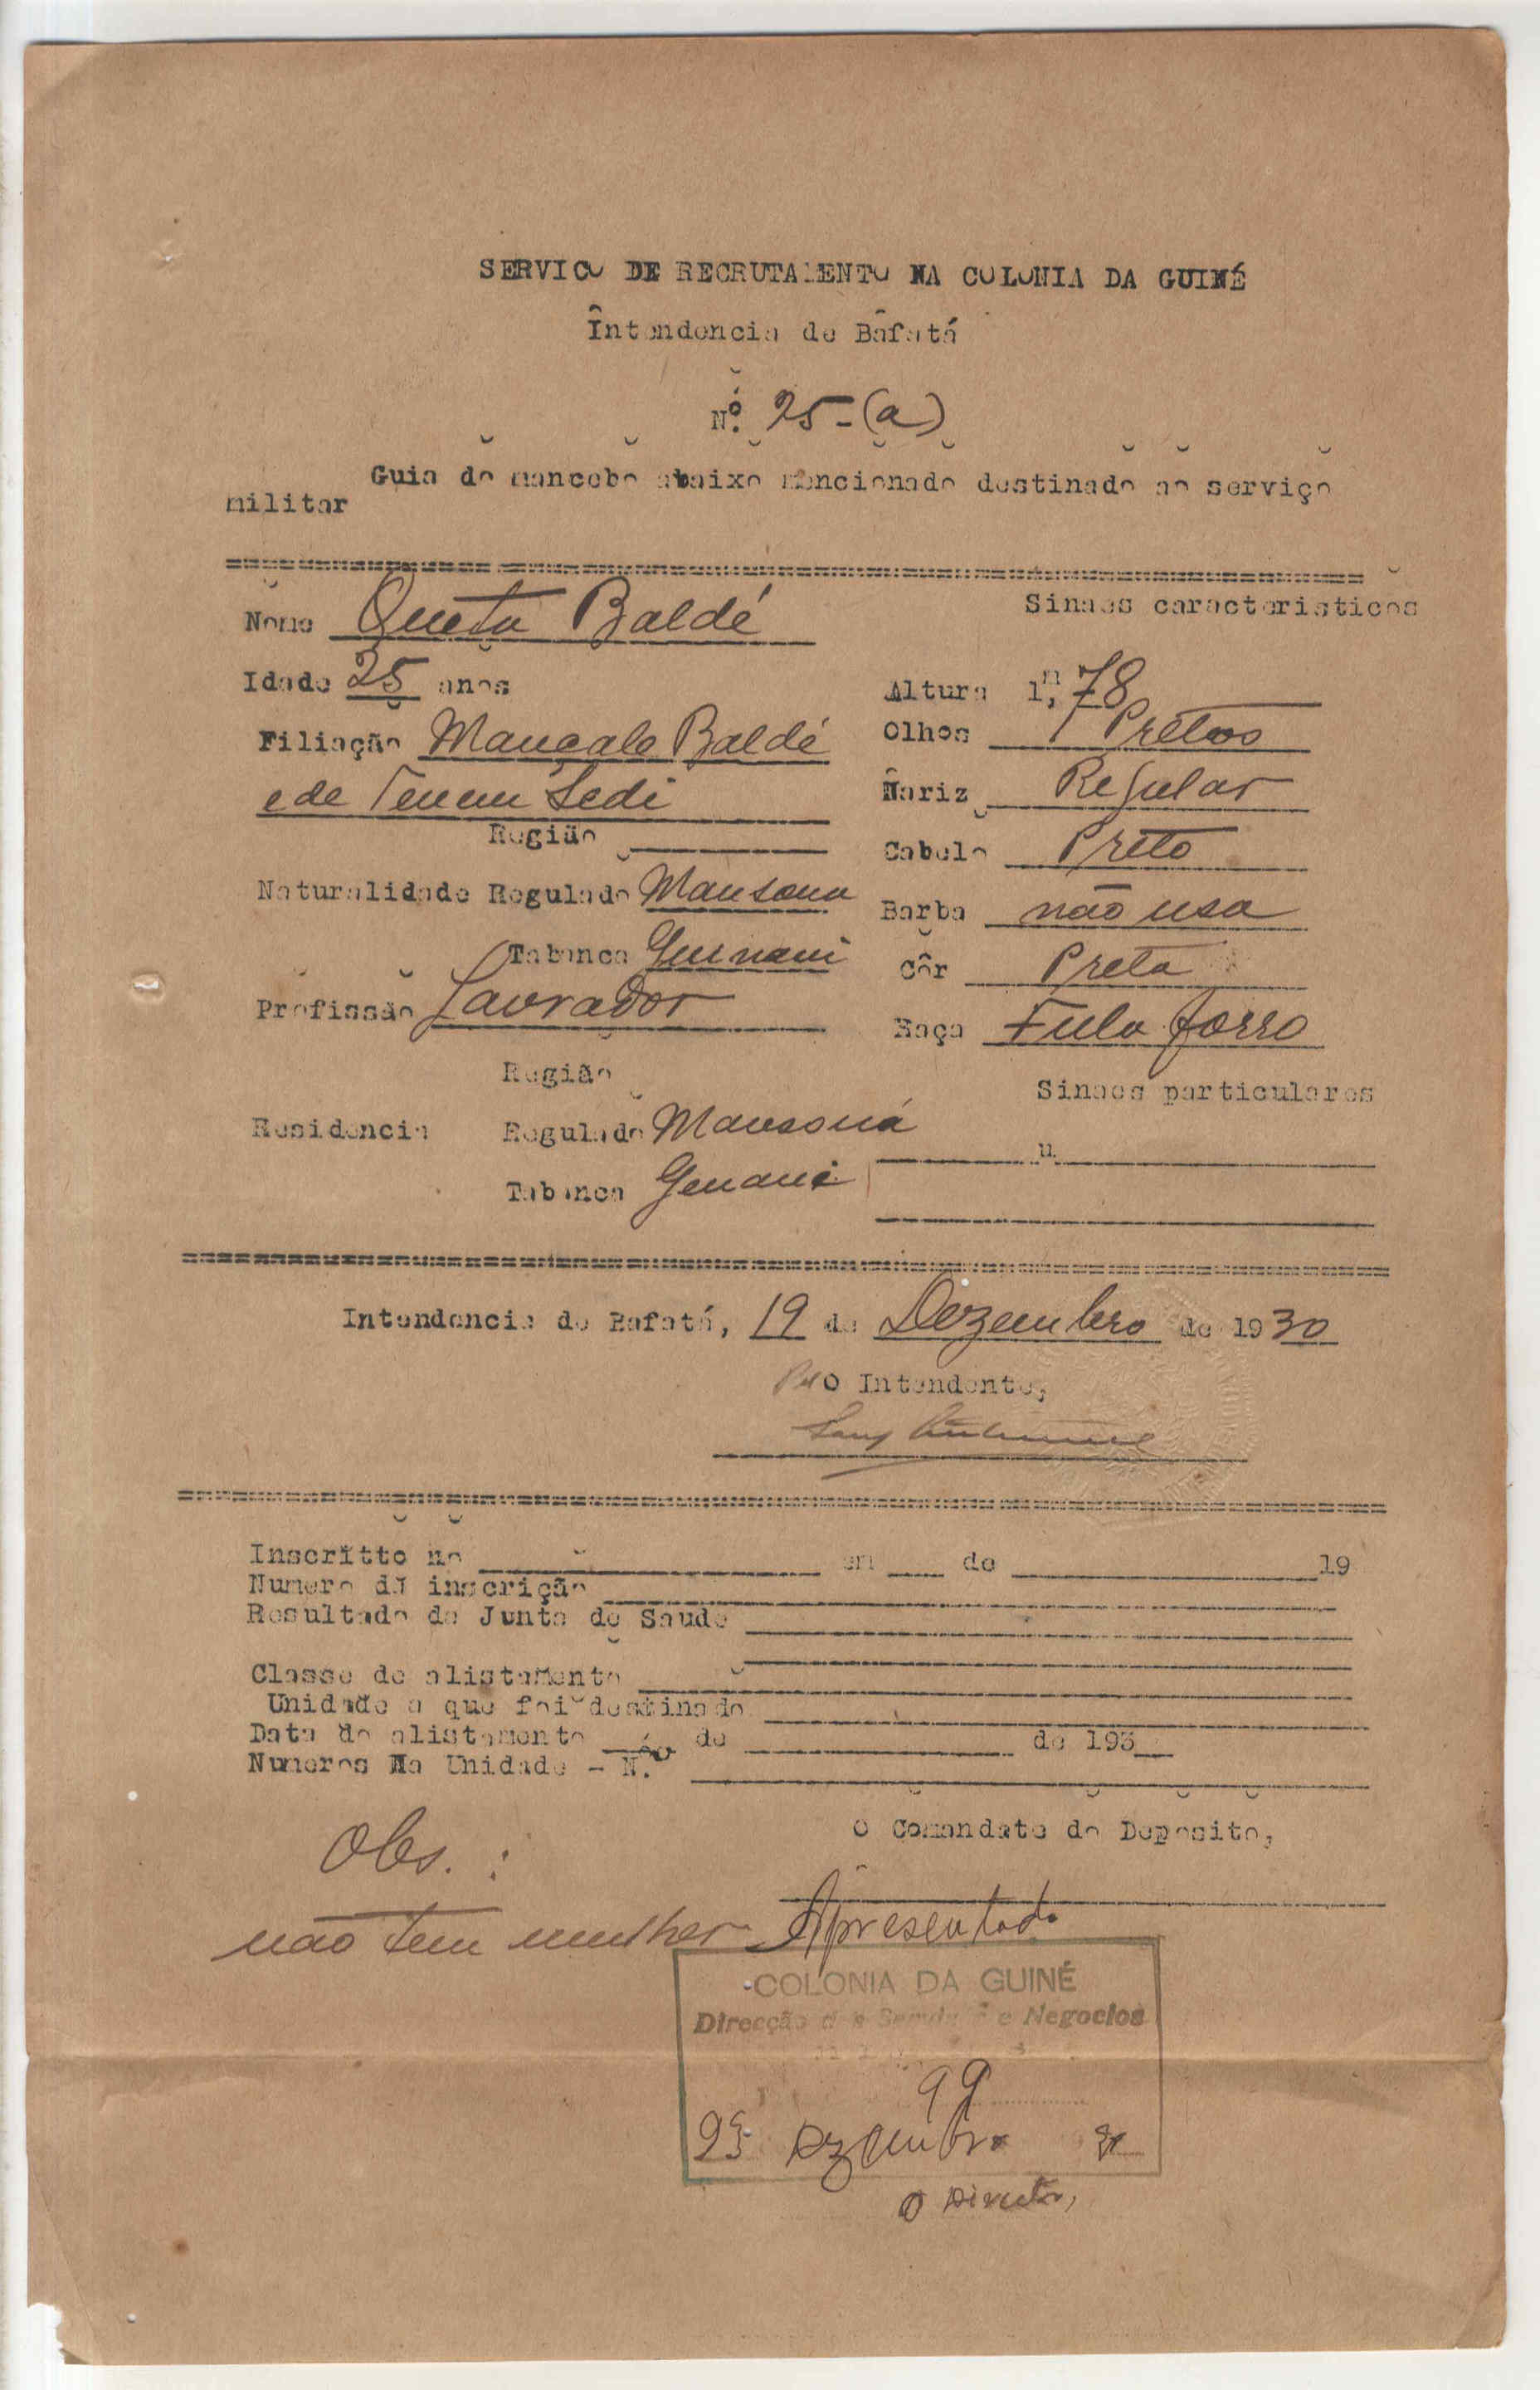 SERVICO DE RECRUTAMENTO NA COLONIA DA GUINÉ
Intendencia de Bafatá
Nº. 25-(a)
Guia do mancebo abaixo mencionado destinado ao serviço
militar
Nome Queta Baldé
Sinaes caracteristicos
Idade 25 anos
Altura 1,m78
Filiação Mancalo Baldé
Olhos Pretos
e de Tenem Sedi
Nariz Regular
Região
Cabelo Preto
Naturalidade Regulado Mansona
Barba não usa
Tabanca
Côr Preta
Profissão Lavrador
Raça Fula forro
Região
Sinaes particulares
Residencia Regulado Mansoná
Tabanca
Intendencia de Bafatá, 19 de Dezembro de 1930
O Intendente,
Inscritto no em de 19
Numero da inscrição
Resultado da Junta de Saude
Classe de alistamento
Unidade a que foi destinado
Data do alistamento de de 193
Numeros Na Unidade - N.º
O Comandate do Deposito,
Obs. :
não tem mulher Apresentado
COLONIA DA GUINÉ
Direcção dos e Negocios
99
23 Dezembro
O Director,